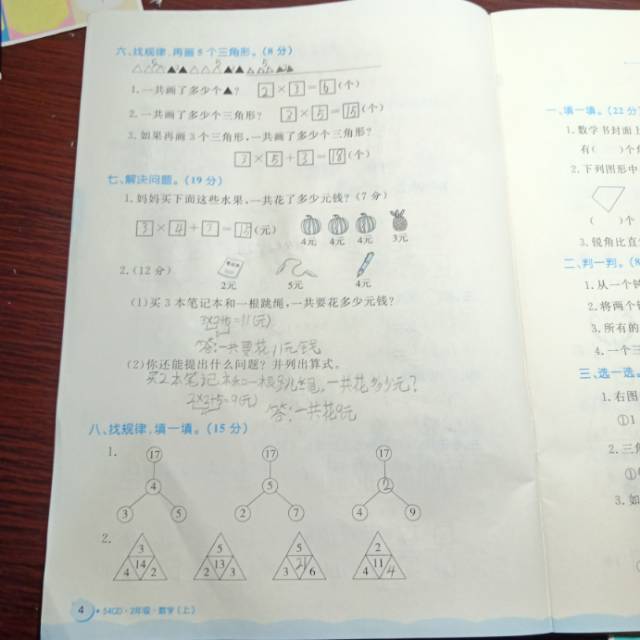 六、找规律,再画5个三角形。(8分)
1.一共画了多少个▲? 2×3=6(个)
2.一共画了多少个三角形? 3×5=15(个)
3.如果再画3个三角形,一共画了多少个三角形?
3×5+3=18(个)
七、解决问题。(19分)
1.妈妈买下面这些水果,一共花了多少元钱?(7分)
3×4+3=15(元)
4元 4元 4元 3元
2.(12分)
2元 5元 4元
(1)买3本笔记本和一根跳绳,一共要花多少元钱?
答:一共要花11元钱
(2)你还能提出什么问题?并列出算式。
买2本笔记本和一根跳绳,一共花多少元?
2×2+5=9(元)
答:一共花9元
八、找规律,填一填。(15分)
1.
17 17 17
4 5
3 5 2 7 4 9
2.
3 5 5 2
14 13 11
4 2 2 3 3 6 4 4
4 54GD·2年级·数学(上)
一、填一填。(22分
1.数学书封面上
有( )个
2.下列图形中
( )个
3.锐角比直
二、判一判。(8
1.从一个
2.将两个
3.所有的
4.一个三
三、选一选。
1.右图
①1
2.三角
3.如